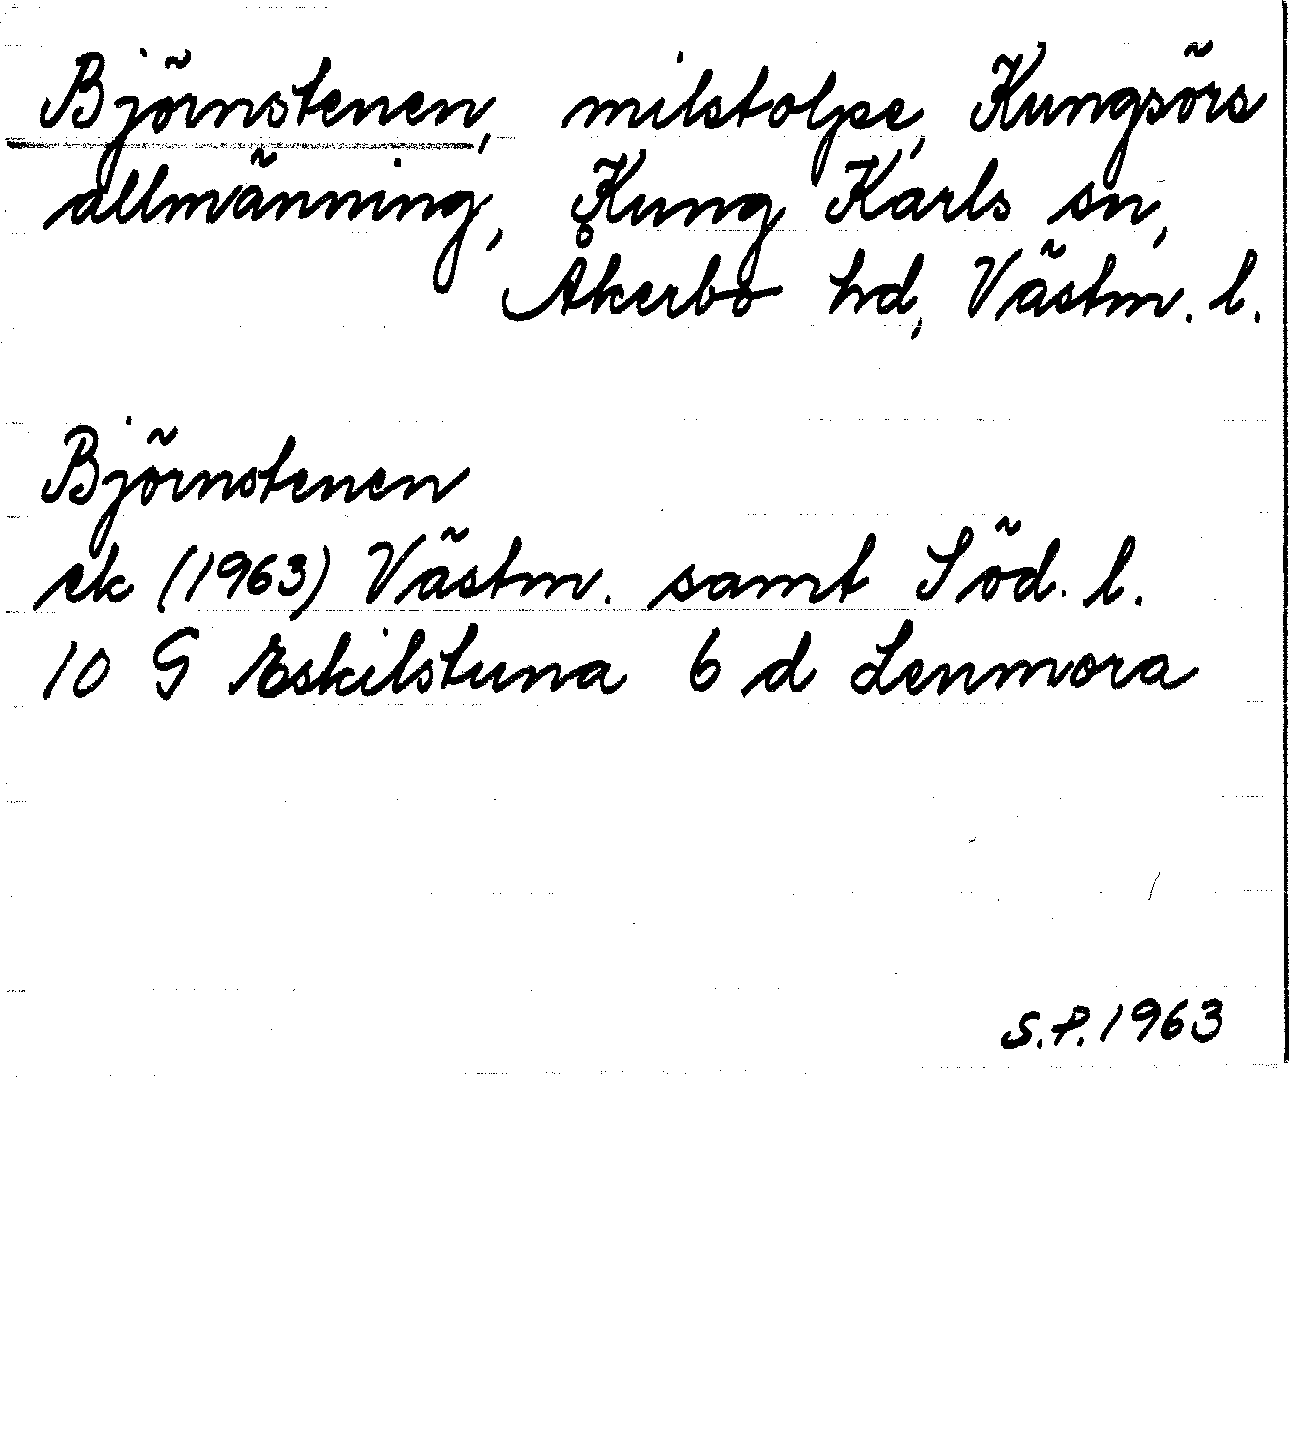 Björnstenen, milstolpe, Kungsörs
allmänning, Kung Karls sn,
Åkerbo hd, Västm. l.
Björnstenen
ek (1963) Västm. samt Söd. l.
10 G Eskilstuna 6 d Lenmora
S.P. 1963